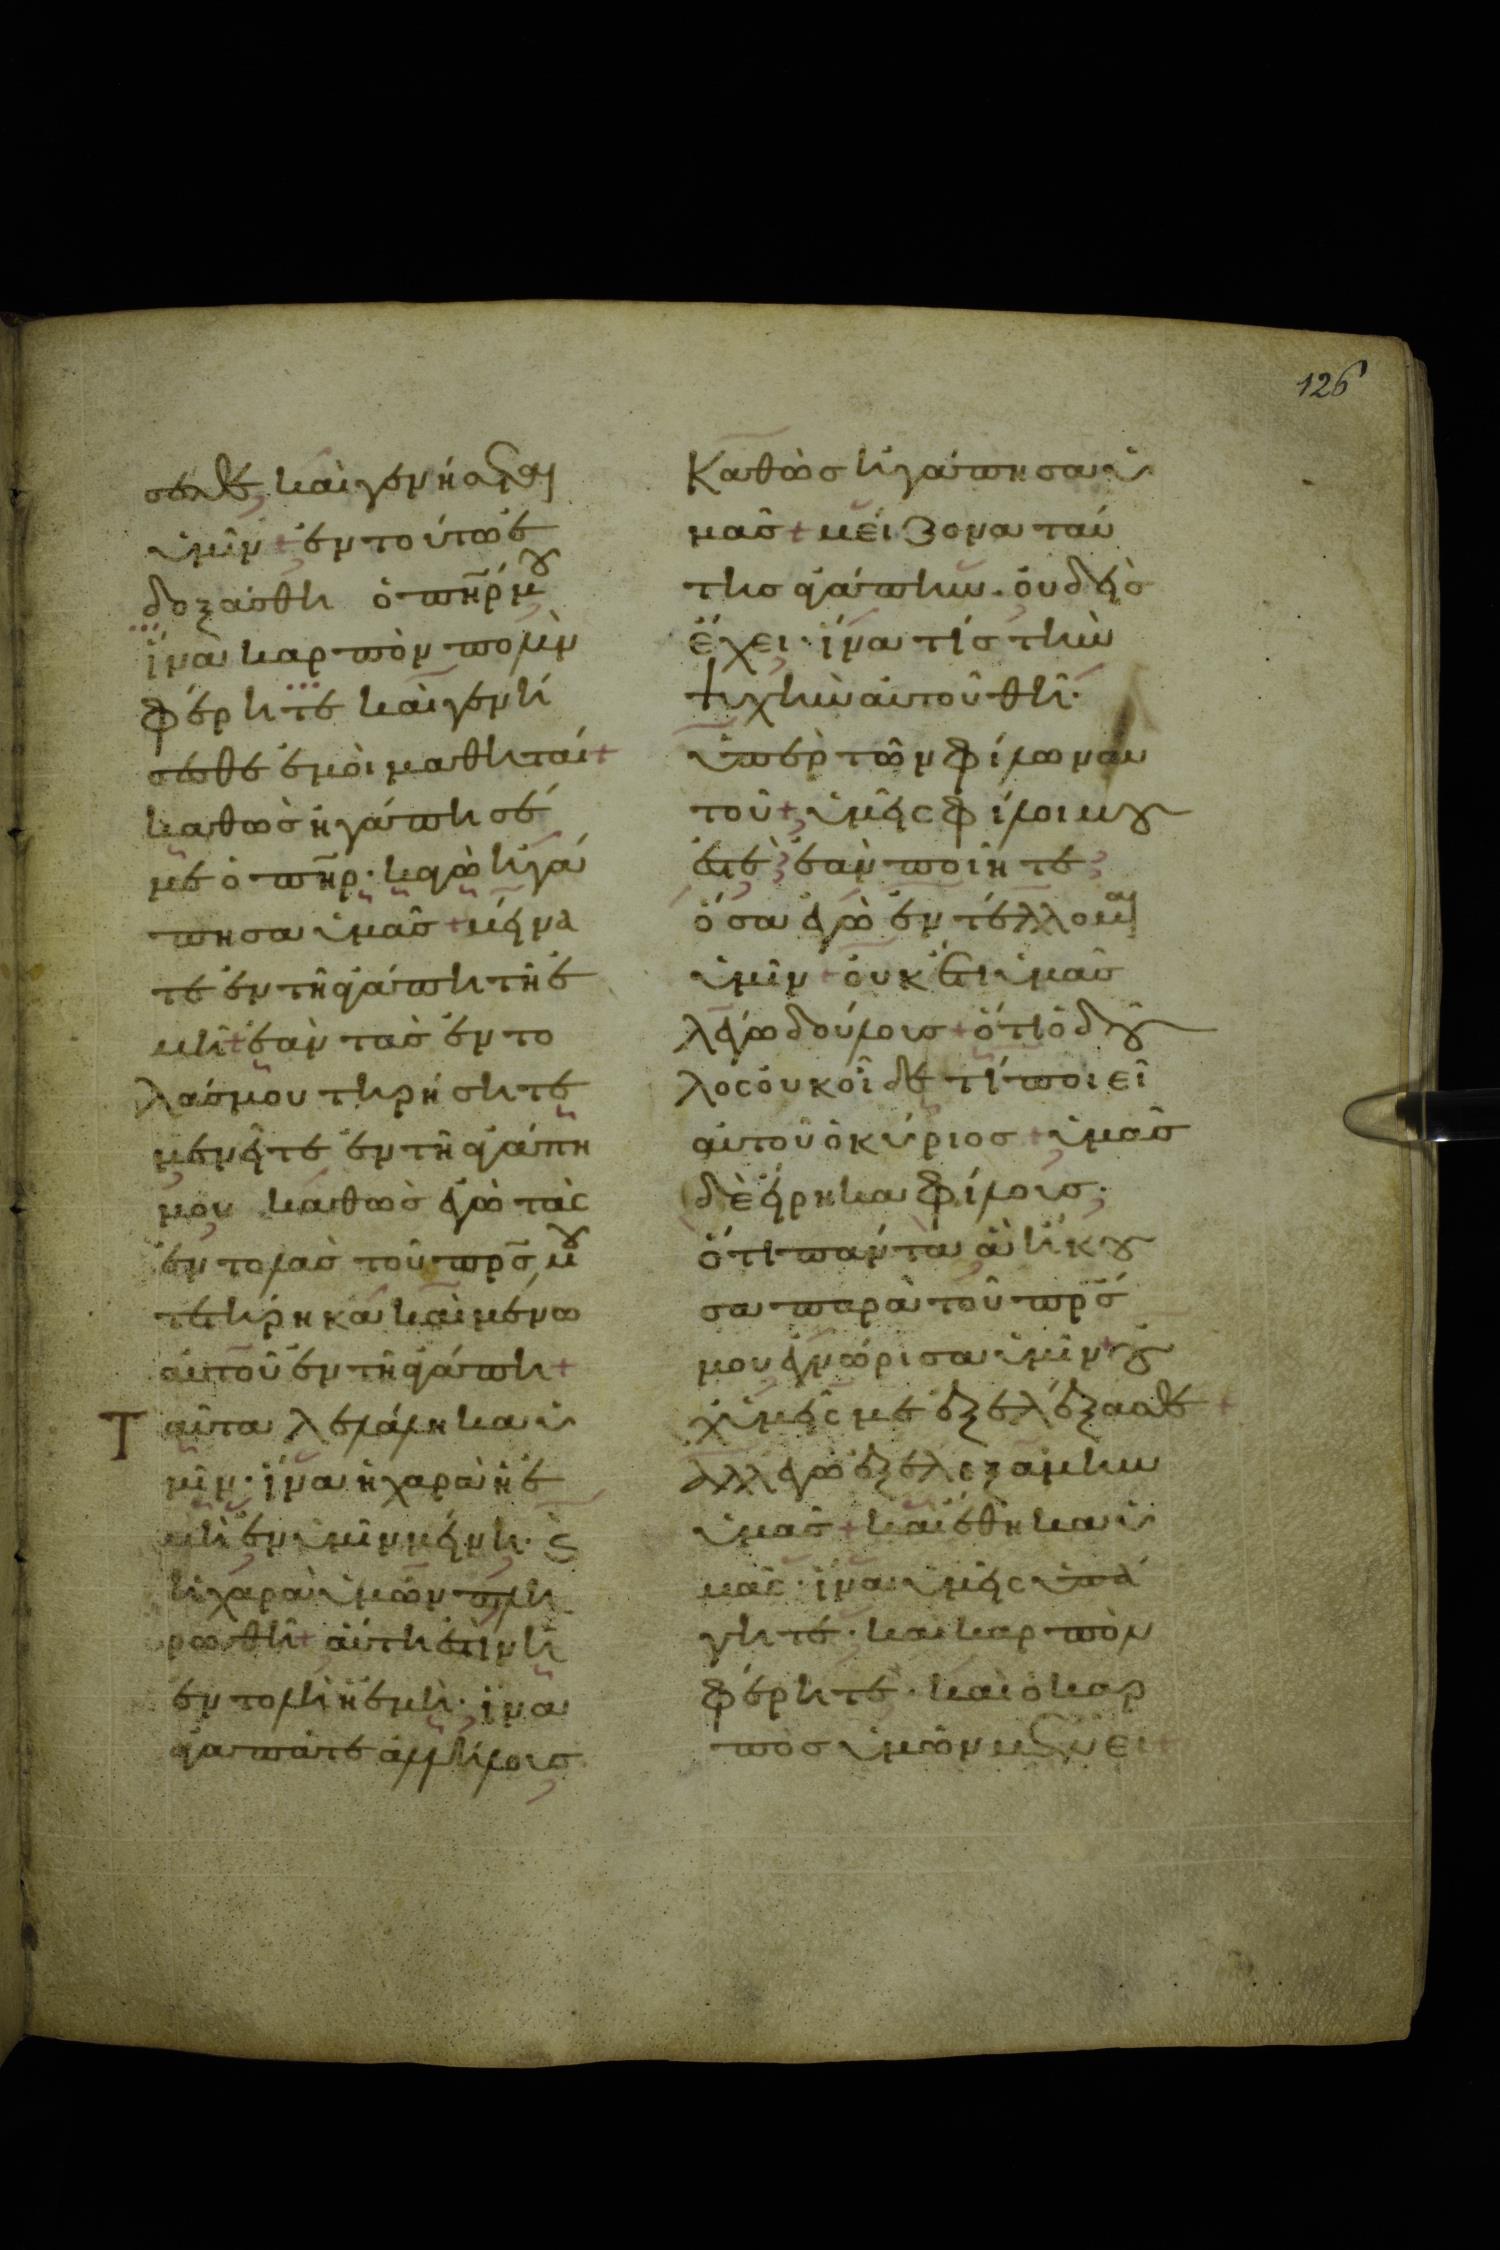 126
σεσθε καὶ γενήσεται
ὑμῖν + ἐν τούτω ἐ
δοξάσθη ὁ πη̅ρ μου
ἵνα καρπὸν πολὺν
φέρητε καὶ γενή
σεσθε ἐμοὶ μαθηταί +
καθὼς ἠγάπησέ
με ὁ πη̅ρ · κἀγὼ ἠγά
πησα ὑμᾶς + μείνα
τε ἐν τῆ ἀγάπη τῆ ἐ
μῆ + ἐὰν τὰς ἐντο
λάς μου τηρήσητε
μενεῖτε ἐν τῆ ἀγάπη
μου καθὼς ἐγὼ τὰς
ἐντολὰς τοῦ πρ̅ς μου
τετήρηκα καὶ μένω
αὐτοῦ ἐν τῆ ἀγάπη +
Ταῦτα λελάληκα ὑ
μῖν · ἵνα ἡ χαρὰ ἡ ἐ
μὴ ἐν ὑμῖν μείνη · ϗ
ἡ χαρὰ ὑμῶν πλη
ρωθῆ + αὕτη ἐστὶν ἡ
ἐντολὴ ἡ ἐμὴ · ἵνα
ἀγαπᾶτε ἀλλήλους
Καθὼς ἠγάπησα ὑ
μᾶς + μείζονα ταύ
της ἀγάπην · οὐδεὶς
ἔχει · ἵνα τίς τὴν
ψυχὴν αὐτοῦ θῆ ·
ὑπὲρ τῶν φίλων αὐ
τοῦ + ὑμεῖς φίλοι μου
ἐστὲ ἐὰν ποιῆτε
ὅσα ἐγὼ ἐντέλλομαι
ὑμῖν + οὐκέτι ὑμᾶς
λέγω δούλους + ὅτι ὁ δοῦ
λος οὐκ οἶδε τί ποιεῖ
αὐτοῦ ὁ κύριος + ὑμᾶς
δὲ εἴρηκα φίλους ·
ὅτι πάντα ἃ ἤκου
σα παρὰ τοῦ πρ̅ς
μου ἐγνώρισα ὑμῖν + οὐ
χ ὑμεῖς με ἐξελέξασθε +
ἀλλ ἐγὼ ἐξελεξάμην
ὑμᾶς + καὶ ἔθηκα ὑ
μᾶς · ἵνα ὑμεῖς ὑπά
γητε · καὶ καρπὸν
φέρητε · καὶ ὁ καρ
πὸς ὑμῶν μένει +